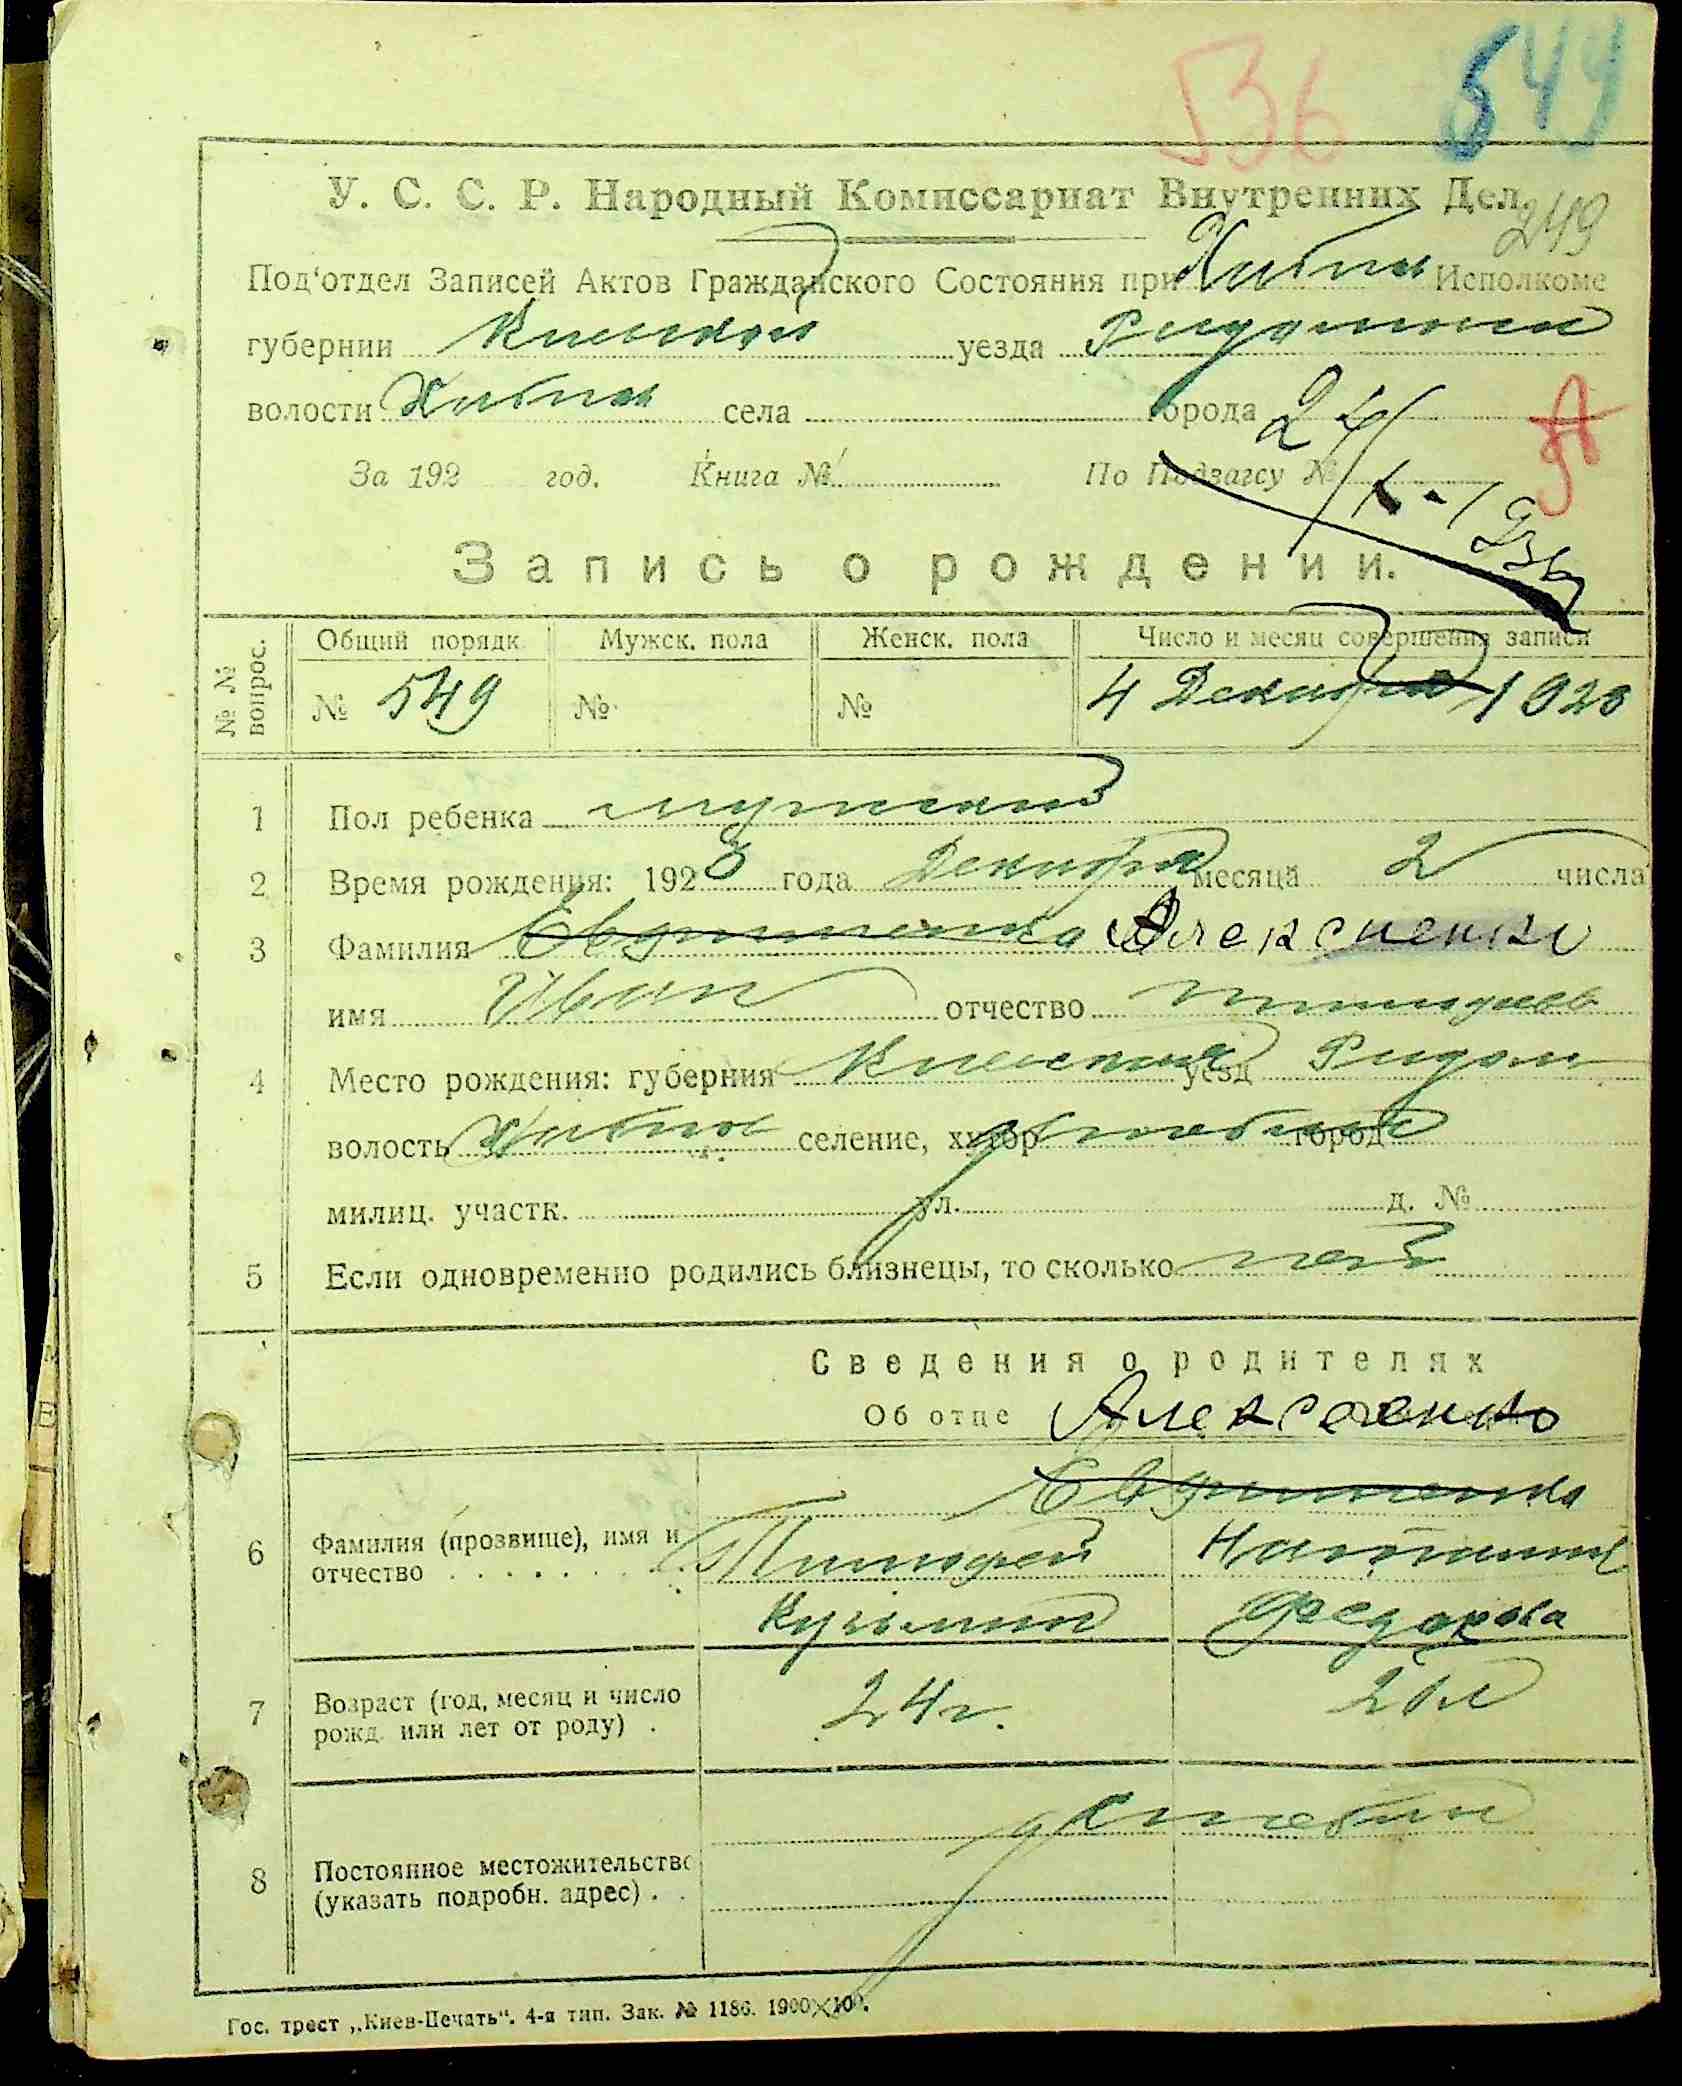 536 549
У. С. С. Р. Народный Комиссариат Внутренних Дел.
249
Под'отдел Записей Актов Гражданского Состояния при Хабны Исполкоме
губернии Киевской уезда
волости Хабны села города
24/X-1936
А
За 192 год. Книга № По Подзагсу №
Запись о рождении.
№ № вопрос. Общий порядк. Мужск. пола Женск. пола Число и месяц совершения записи
№ 549 № № 4 Декабря 1923
1 Пол ребенка мужской
2 Время рождения: 1923 года Декабря месяца 2 числа
3 Фамилия Евдименко Алексеенко
имя Иван отчество Тимофеев
4 Место рождения: губерния Киевская уезд
волость Хабны селение, хутор город
милиц. участк. ул. д. №
5 Если одновременно родились близнецы, то сколько нет
Сведения о родителях
Об отце Алексеенко
6 Фамилия (прозвище), имя и отчество
Тимофей
Кузьмин Федорова
7 Возраст (год, месяц и число рожд. или лет от роду) . 24 г. 20 л
8 Постоянное местожительство (указать подробн. адрес) . .
Гос. трест „Киев-Печать“. 4-я тип. Зак. № 1186. 1900×100.